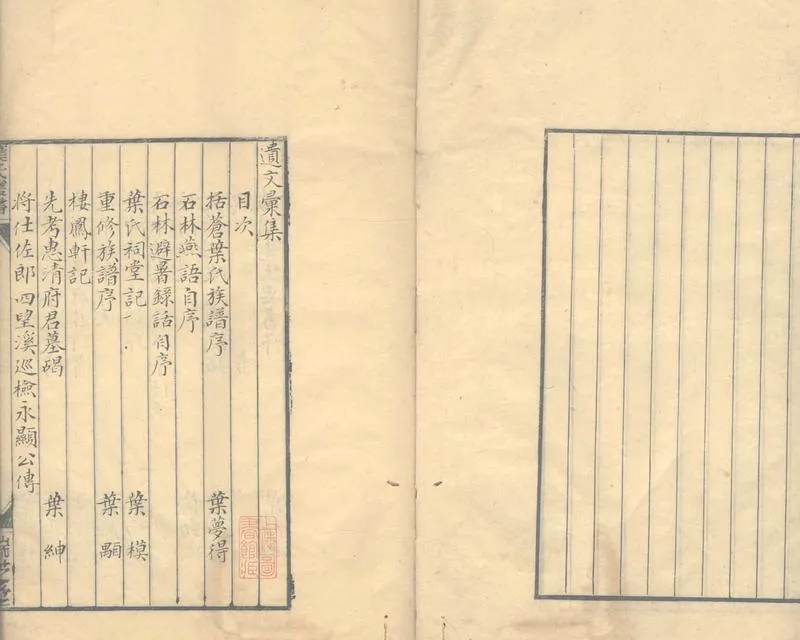 遺文彙集
目次
括蒼葉氏族譜序 葉夢得
石林燕語自序
石林避暑録話自序
葉氏祠堂記 葉模
重修族譜序 葉顒
棲鳳軒記
先考惠清府君墓碣 葉紳
将仕佐郎四望溪巡檢永顯公傳